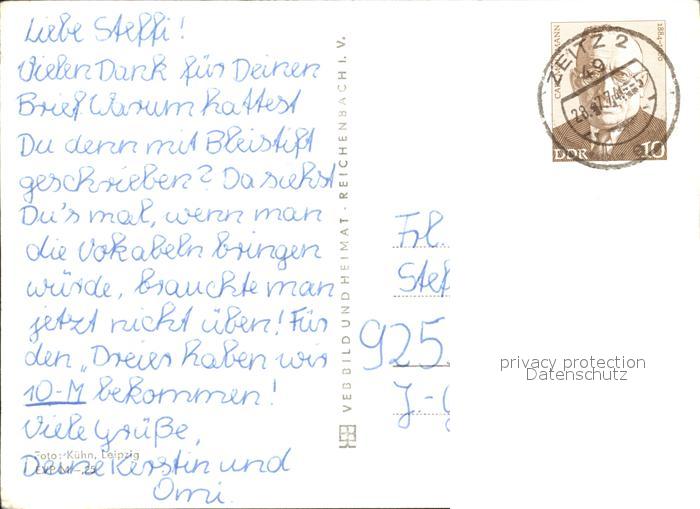 Liebe Steffi!
Vielen Dank für Deinen
Brief Warum hattest
Du denn mit Bleistift
geschrieben? Da siehst
Du's mal, wenn man
die Vokabeln bringen
würde, brauchte man
jetzt nicht üben! Für
den „Dreier haben wir
10-M bekommen!
Viele Grüße,
Deine Kerstin und
Omi.
Foto: Kühn, Leipzig
VEB BILD UND HEIMAT · REICHENBACH I. V.
ZEITZ 2
49
DDR 10
1884-1960
Frl.
Stef
925
J.-
privacy protection
Datenschutz